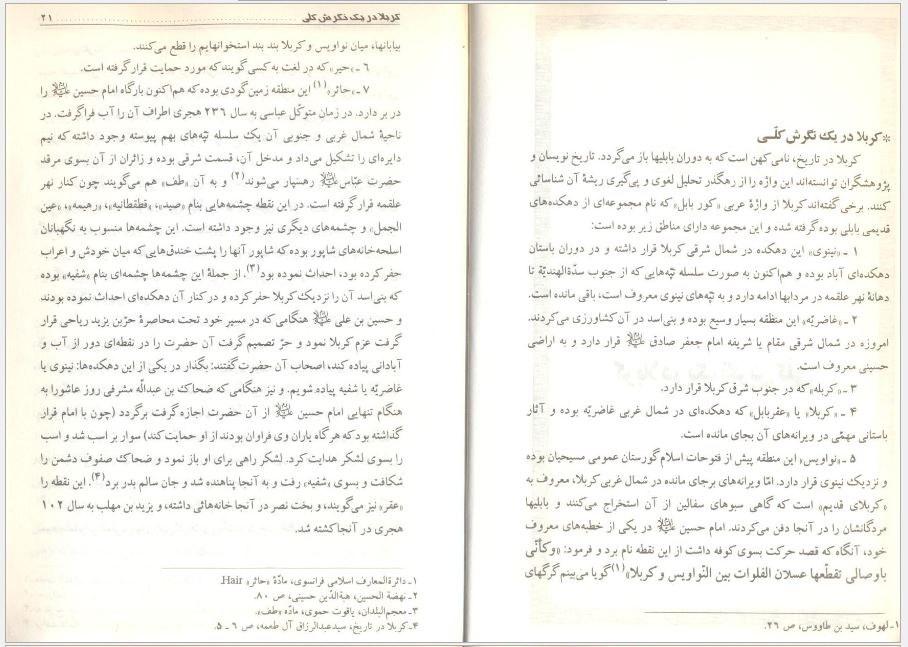 *کربلا در یک نگرش کلّـی
کربلا در تاریخ، نامی کهن است که به دوران بابلیها باز می‌گردد. تاریخ نویسان و
پژوهشگران توانسته‌اند این واژه را از رهگذر تحلیل لغوی و پی‌گیری ریشهٔ آن شناسائی
کنند. برخی گفته‌اند کربلا از واژهٔ عربی «کور بابل» که نام مجموعه‌ای از دهکده‌های
قدیمی بابلی بوده گرفته شده و این مجموعه دارای مناطق زیر بوده است:
۱ ـ «نینوی» این دهکده در شمال شرقی کربلا قرار داشته و در دوران باستان
دهکده‌ای آباد بوده و هم‌اکنون به صورت سلسله تپّه‌هایی که از جنوب سدّةالهندیّة تا
دهانهٔ نهر علقمه در مردابها ادامه دارد و به تپّه‌های نینوی معروف است، باقی مانده است.
۲ ـ «غاضریّه» این منطقه بسیار وسیع بوده و بنی‌اسد در آن کشاورزی می‌کردند.
امروزه در شمال شرقی مقام یا شریفه امام جعفر صادق علیه‌السلام قرار دارد و به اراضی
حسینی معروف است.
۳ ـ «کربله» که در جنوب شرق کربلا قرار دارد.
۴ ـ «کربلاء یا «عقربابل» که دهکده‌ای در شمال غربی غاضریّه بوده و آثار
باستانی مهمّی در ویرانه‌های آن بجای مانده است.
۵ ـ «نواویس» این منطقه پیش از فتوحات اسلام گورستان عمومی مسیحیان بوده
و نزدیک نینوی قرار دارد. امّا ویرانه‌های برجای مانده در شمال غربی کربلا، معروف به
«کربلای قدیم» است که گاهی سبوهای سفالین از آن استخراج می‌کنند و بابلیها
مردگانشان را در آنجا دفن می‌کردند. امام حسین علیه‌السلام در یکی از خطبه‌های معروف
خود، آنگاه که قصد حرکت بسوی کوفه داشت از این نقطه نام برد و فرمود: «وکأنّی
باوصالی تقطّعها عسلان الفلوات بین النّواویس و کربلا»(۱) گویا می‌بینم گرگهای
۱ـ لهوف، سید بن طاووس، ص ۲۶.
کربلا در یک نگرش کلی ........ ۲۱
بیابانها، میان نواویس و کربلا بند بند استخوانهایم را قطع می‌کنند.
۶ ـ «حیر» که در لغت به کسی گویند که مورد حمایت قرار گرفته است.
۷ ـ «حائر»(۱) این منطقه زمین گودی بوده که هم‌اکنون بارگاه امام حسین علیه‌السلام را
در بر دارد. در زمان متوکّل عباسی به سال ۲۳۶ هجری اطراف آن را آب فراگرفت. در
ناحیهٔ شمال غربی و جنوبی آن یک سلسله تپّه‌های بهم پیوسته وجود داشته که نیم
دایره‌ای را تشکیل می‌داد و مدخل آن، قسمت شرقی بوده و زائران از آن بسوی مرقد
حضرت عبّاس علیه‌السلام رهسپار می‌شوند(۲) و به آن «طف» هم می‌گویند چون کنار نهر
علقمه قرار گرفته است. در این نقطه چشمه‌هایی بنام «صید»، «قطقطانیه»، «رهیمه»، «عین
الجمل» و چشمه‌های دیگری نیز وجود داشته است. این چشمه‌ها منسوب به نگهبانان
اسلحه‌خانه‌های شاپور بوده که شاپور آنها را پشت خندق‌هایی که میان خودش و اعراب
حفر کرده بود، احداث نموده بود(۳). از جملهٔ این چشمه‌ها چشمه‌ای بنام «شفیه» بوده
که بنی‌اسد آن را نزدیک کربلا حفر کرده و در کنار آن دهکده‌ای احداث نموده بودند
و حسین بن علی علیه‌السلام هنگامی که در مسیر خود تحت محاصرهٔ حرّبن یزید ریاحی قرار
گرفت عزم کربلا نمود و حرّ تصمیم گرفت آن حضرت را در نقطه‌ای دور از آب و
آبادانی پیاده کند، اصحاب آن حضرت گفتند: بگذار در یکی از این دهکده‌ها: نینوی یا
غاضریّه یا شفیه پیاده شویم. و نیز هنگامی که ضحاک بن عبدالّه مشرفی روز عاشورا به
هنگام تنهایی امام حسین علیه‌السلام از آن حضرت اجازه گرفت برگردد (چون با امام قرار
گذاشته بود که هر گاه یاران وی فراوان بودند از او حمایت کند) سوار بر اسب شد و اسب
را بسوی لشکر هدایت کرد. لشکر راهی برای او باز نمود و ضحاک صفوف دشمن را
شکافت و بسوی «شفیه» رفت و به آنجا پناهنده شد و جان سالم بدر برد(۴). این نقطه را
«عقر» نیز می‌گویند، و بخت نصر در آنجا خانه‌هائی داشته، و یزید بن مهلب به سال ۱۰۲
هجری در آنجا کشته شد.
۱ـ دائرةالمعارف اسلامی فرانسوی، مادّهٔ «حائر» Hair.
۲ـ نهضة الحسین، هبةالدّین حسینی، ص ۸۰.
۳ـ معجم‌البلدان، یاقوت حموی، مادّه «طف».
۴ـ کربلا در تاریخ، سیدعبدالرزاق آل طعمه، ص ۶ ـ ۵.